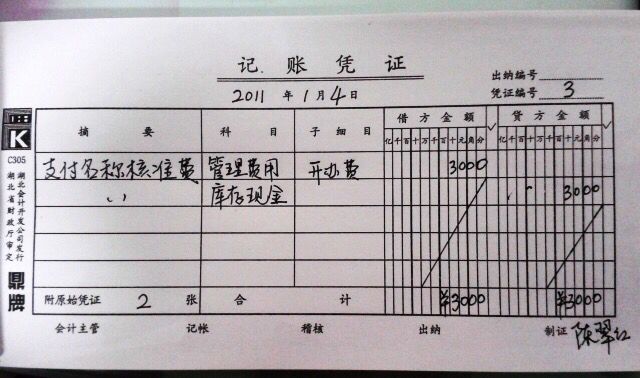 记 账 凭 证
出纳编号
2011 年 1 月 4 日
凭证编号 3
摘 要 科 目 子细目 借方金额 贷方金额
亿千百十万千百十元角分 亿千百十万千百十元角分
支付名称核准费 管理费用 开办费 3000
〃 库存现金 3000
附原始凭证 2 张 合 计 ¥3000 ¥3000
会计主管 记帐 稽核 出纳 制证 陈翠红
K
C305
湖北会计开发公司发行
湖北省财政厅审定
鼎牌